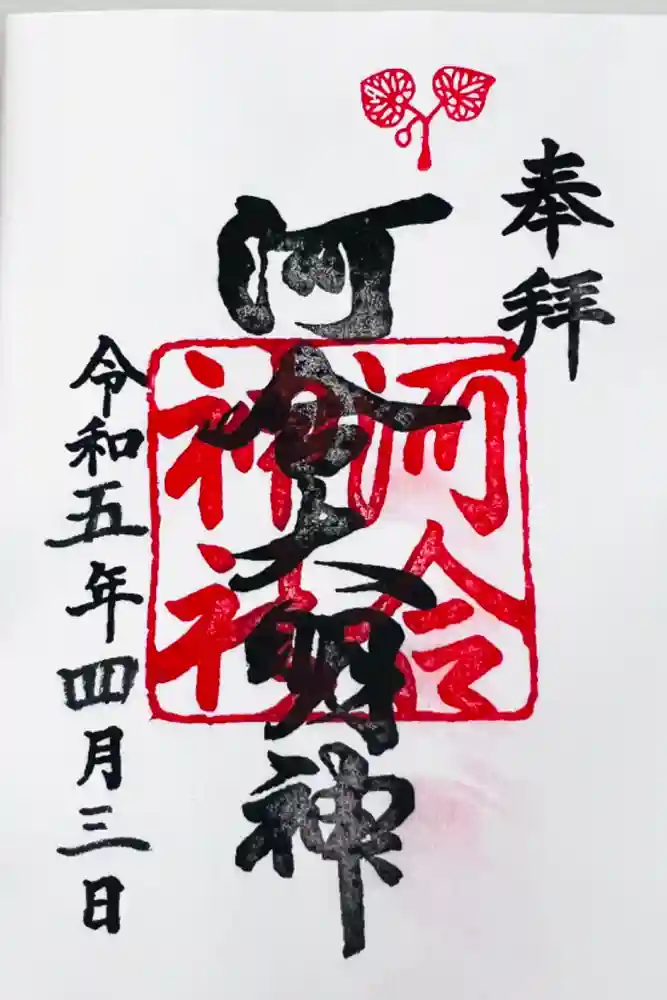 奉拝
河合大明神
河合
神社
令和五年四月三日